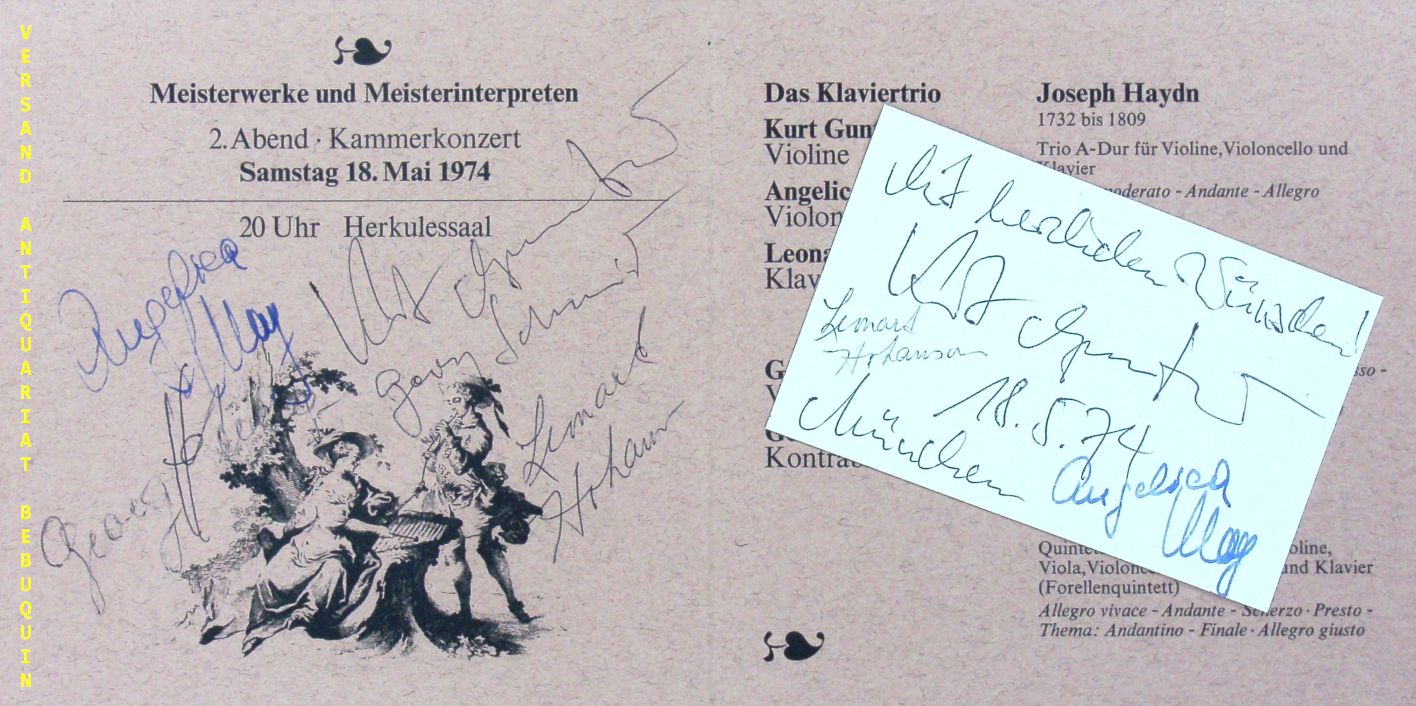 VERSAND ANTIQUARIAT BEBUQUIN
Meisterwerke und Meisterinterpreten
2. Abend · Kammerkonzert
Samstag 18. Mai 1974
20 Uhr Herkulessaal
Angelica
May
Kurt Guntner
Georg Schmid
Georg
Lennart
Hohanson
Das Klaviertrio
Kurt Gun
Violine
Angelic
Violon
Leona
Klav
G
V
G
Kontra
Joseph Haydn
1732 bis 1809
Trio A-Dur für Violine, Violoncello und
Klavier
moderato - Andante - Allegro
sso -
Quintet oline,
Viola, Violonc und Klavier
(Forellenquintett)
Allegro vivace - Andante - Scherzo · Presto -
Thema: Andantino - Finale · Allegro giusto
Mit herzlichen Wünschen!
Kurt Guntner
Lennart
Hohanson
18.5.74
München
Angelica
May